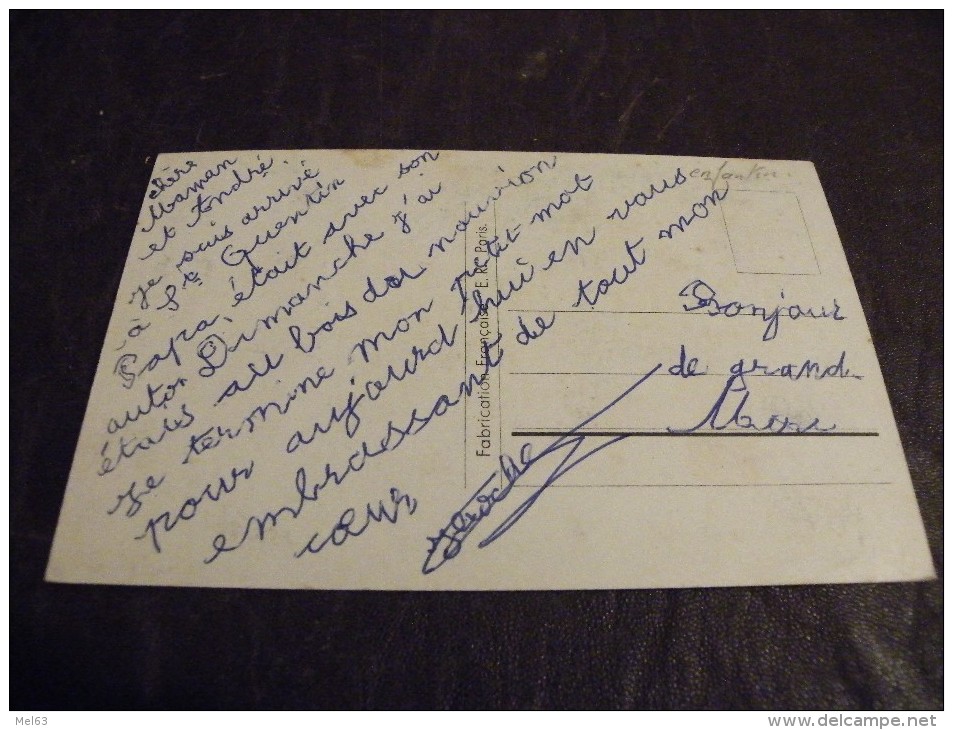 chère
Maman
et tendré
je suis arrivé
à St Quentin
Papa, était avec son
auto. Dimanche j'ai
étais au bois dor nouvion
je termine mon Petit mot
pour aujourd'hui en vous
embrassant de tout mon
cœur
enfantin.
Fabrication Française E.R. Paris.
Bonjour
de grand
Mam
Mel63
www.delcampe.net